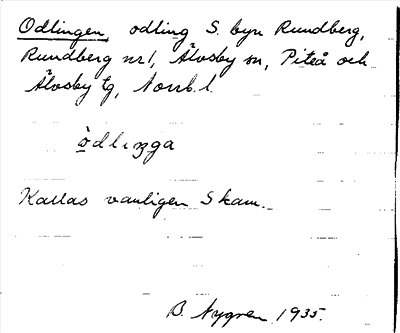 Odlingen, odling S. byn Rundberg,
Rundberg nr 1, Älvsby sn, Piteå och
Älvsby tg, Norrb. l.
òdlıŋga
Kallas vanligen Skam.
B. Nygren 1935.